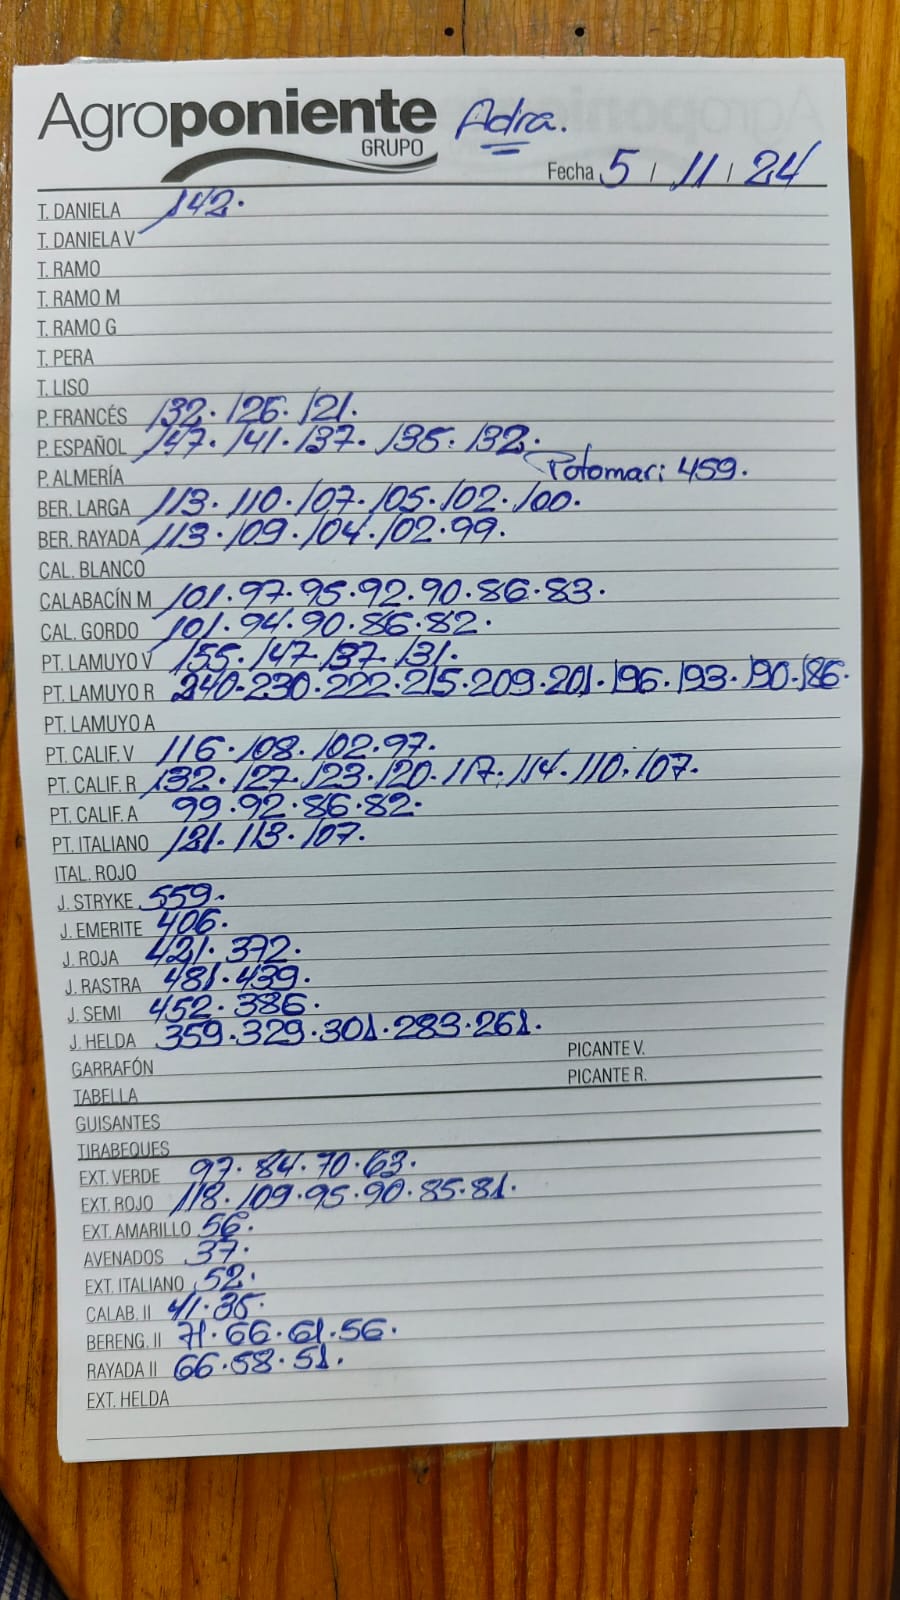 Agroponiente Adra.
GRUPO
Fecha 5 / 11 / 24
T. DANIELA 142.
T. DANIELA V
T. RAMO
T. RAMO M
T. RAMO G
T. PERA
T. LISO
P. FRANCÉS 132. 126. 121.
P. ESPAÑOL 147. 141. 137. 135. 132.
P. ALMERÍA Potomar: 459.
BER. LARGA 113. 110. 107. 105. 102. 100.
BER. RAYADA 113. 109. 104. 102. 99.
CAL. BLANCO
CALABACÍN M 101. 97. 95. 92. 90. 86. 83.
CAL. GORDO 101. 94. 90. 86. 82.
PT. LAMUYO V 155. 147. 137. 131.
PT. LAMUYO R 240. 230. 222. 215. 209. 201. 196. 193. 190. 186.
PT. LAMUYO A
PT. CALIF. V 116. 108. 102. 97.
PT. CALIF. R 132. 127. 123. 120. 117. 114. 110. 107.
PT. CALIF. A 99. 92. 86. 82.
PT. ITALIANO 121. 113. 107.
ITAL. ROJO
J. STRYKE 559.
J. EMERITE 406.
J. ROJA 421. 372.
J. RASTRA 481. 439.
J. SEMI 452. 386.
J. HELDA 359. 329. 301. 283. 261.
GARRAFÓN PICANTE V.
TABELLA PICANTE R.
GUISANTES
TIRABEQUES
EXT. VERDE 97. 84. 70. 63.
EXT. ROJO 118. 109. 95. 90. 85. 81.
EXT. AMARILLO 56.
AVENADOS 37.
EXT. ITALIANO 52.
CALAB. II 41. 35.
BERENG. II 71. 66. 61. 56.
RAYADA II 66. 58. 51.
EXT. HELDA